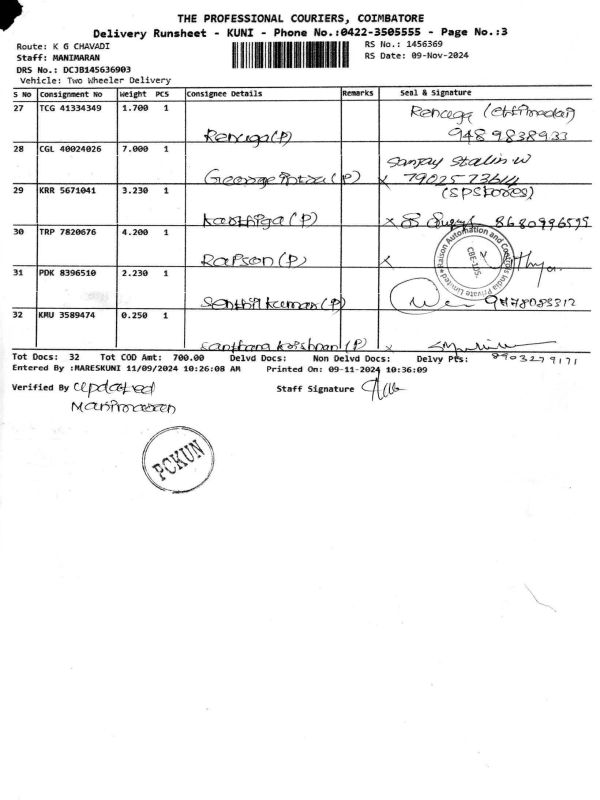 THE PROFESSIONAL COURIERS, COIMBATORE
Delivery Runsheet - KUNI - Phone No.:0422-3505555 - Page No.:3
Route: K G CHAVADI
RS No.: 1456369
Staff: MANIMARAN
RS Date: 09-Nov-2024
DRS No.: DCJB145636903
Vehicle: Two Wheeler Delivery
S No Consignment No Weight PCS Consignee Details Remarks Seal & Signature
27 TCG 41334349 1.700 1 Renuga (P) Renuga
9489838933
28 CGL 40024026 7.000 1 George (P) Sanjay Stalin W
7902573614
29 KRR 5671041 3.230 1 Karthiga (P) (SPStores)
8680996599
30 TRP 7820676 4.200 1 Rapson (P)
Raison Automation and Controls India Private Limited
CBE-105.
31 PDK 8396510 2.230 1 Senthil kumar (P) 9478085312
32 KMU 3589474 0.250 1 Santhana krishnan (P)
Tot Docs: 32 Tot COD Amt: 700.00 Delvd Docs: Non Delvd Docs: Delvy Pts: 8903279171
Entered By :MARESKUNI 11/09/2024 10:26:08 AM Printed On: 09-11-2024 10:36:09
Verified By updated Staff Signature
Manimaran
PCKUN